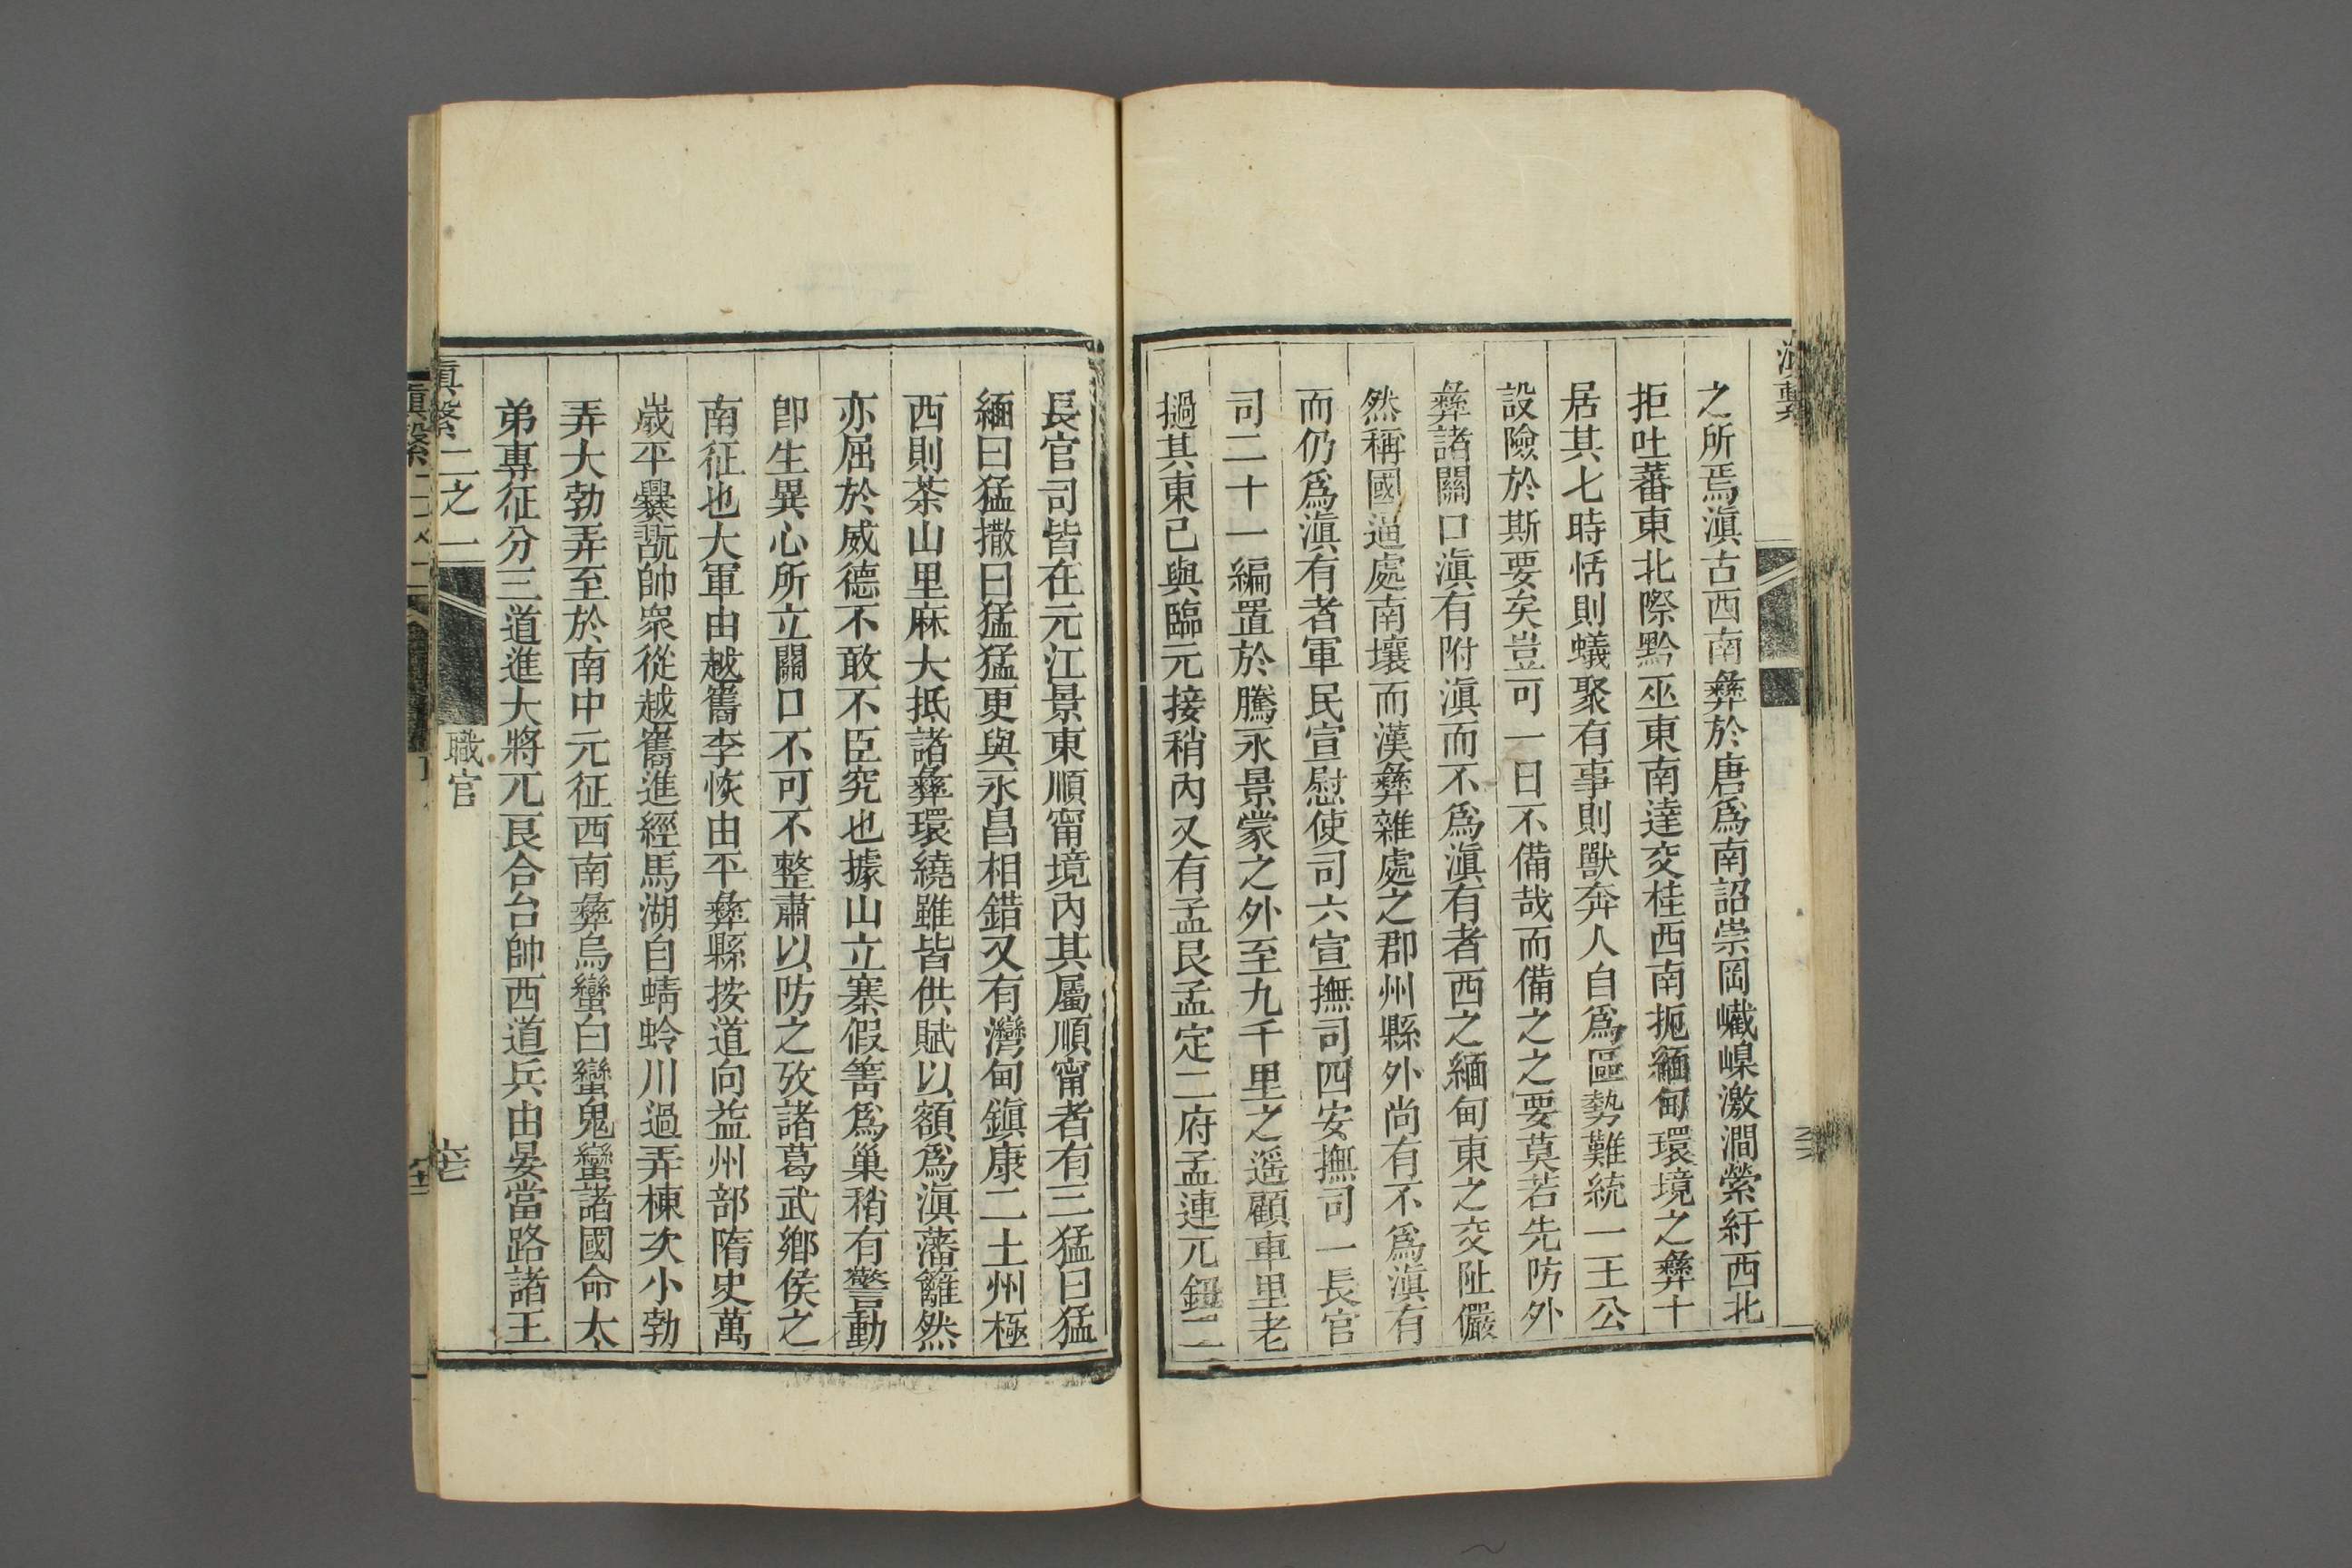 之所焉滇古西南彝於唐爲南詔崇岡巇嵲激澗縈紆西北
拒吐蕃東北際黔巫東南達交桂西南扼緬甸環境之彝十
居其七時恬則蟻聚有事則獸奔人自爲區勢難統一王公
設險於斯要矣豈可一日不備哉而備之之要莫若先防外
彝諸關口滇有附滇而不爲滇有者西之緬甸東之交阯儼
然稱國逼處南壤而漢彝雜處之郡州縣外尚有不爲滇有
而仍爲滇有者軍民宣慰使司六宣撫司四安撫司一長官
司二十一編置於騰永景蒙之外至九千里之遥顧車里老
撾其東己與臨元接稍內又有孟艮孟定二府孟連兀鈕二
長官司皆在元江景東順甯境內其屬順甯者有三猛曰猛
緬曰猛撒曰猛猛更與永昌相錯又有灣甸鎭康二土州極
西則茶山里麻大抵諸彝環繞雖皆供賦以額爲滇藩籬然
亦屈於威德不敢不臣究也據山立寨假箐爲巢稍有警動
卽生異心所立關口不可不整肅以防之攷諸葛武鄉侯之
南征也大軍由越巂李恢由平彝縣按道向益州部隋史萬
歲平爨翫帥衆從越巂進經馬湖自蜻蛉川過弄棟次小勃
弄大勃弄至於南中元征西南彝烏蠻白蠻鬼蠻諸國命太
弟專征分三道進大將兀良合台帥西道兵由晏當路諸王
滇繫二之一
職官